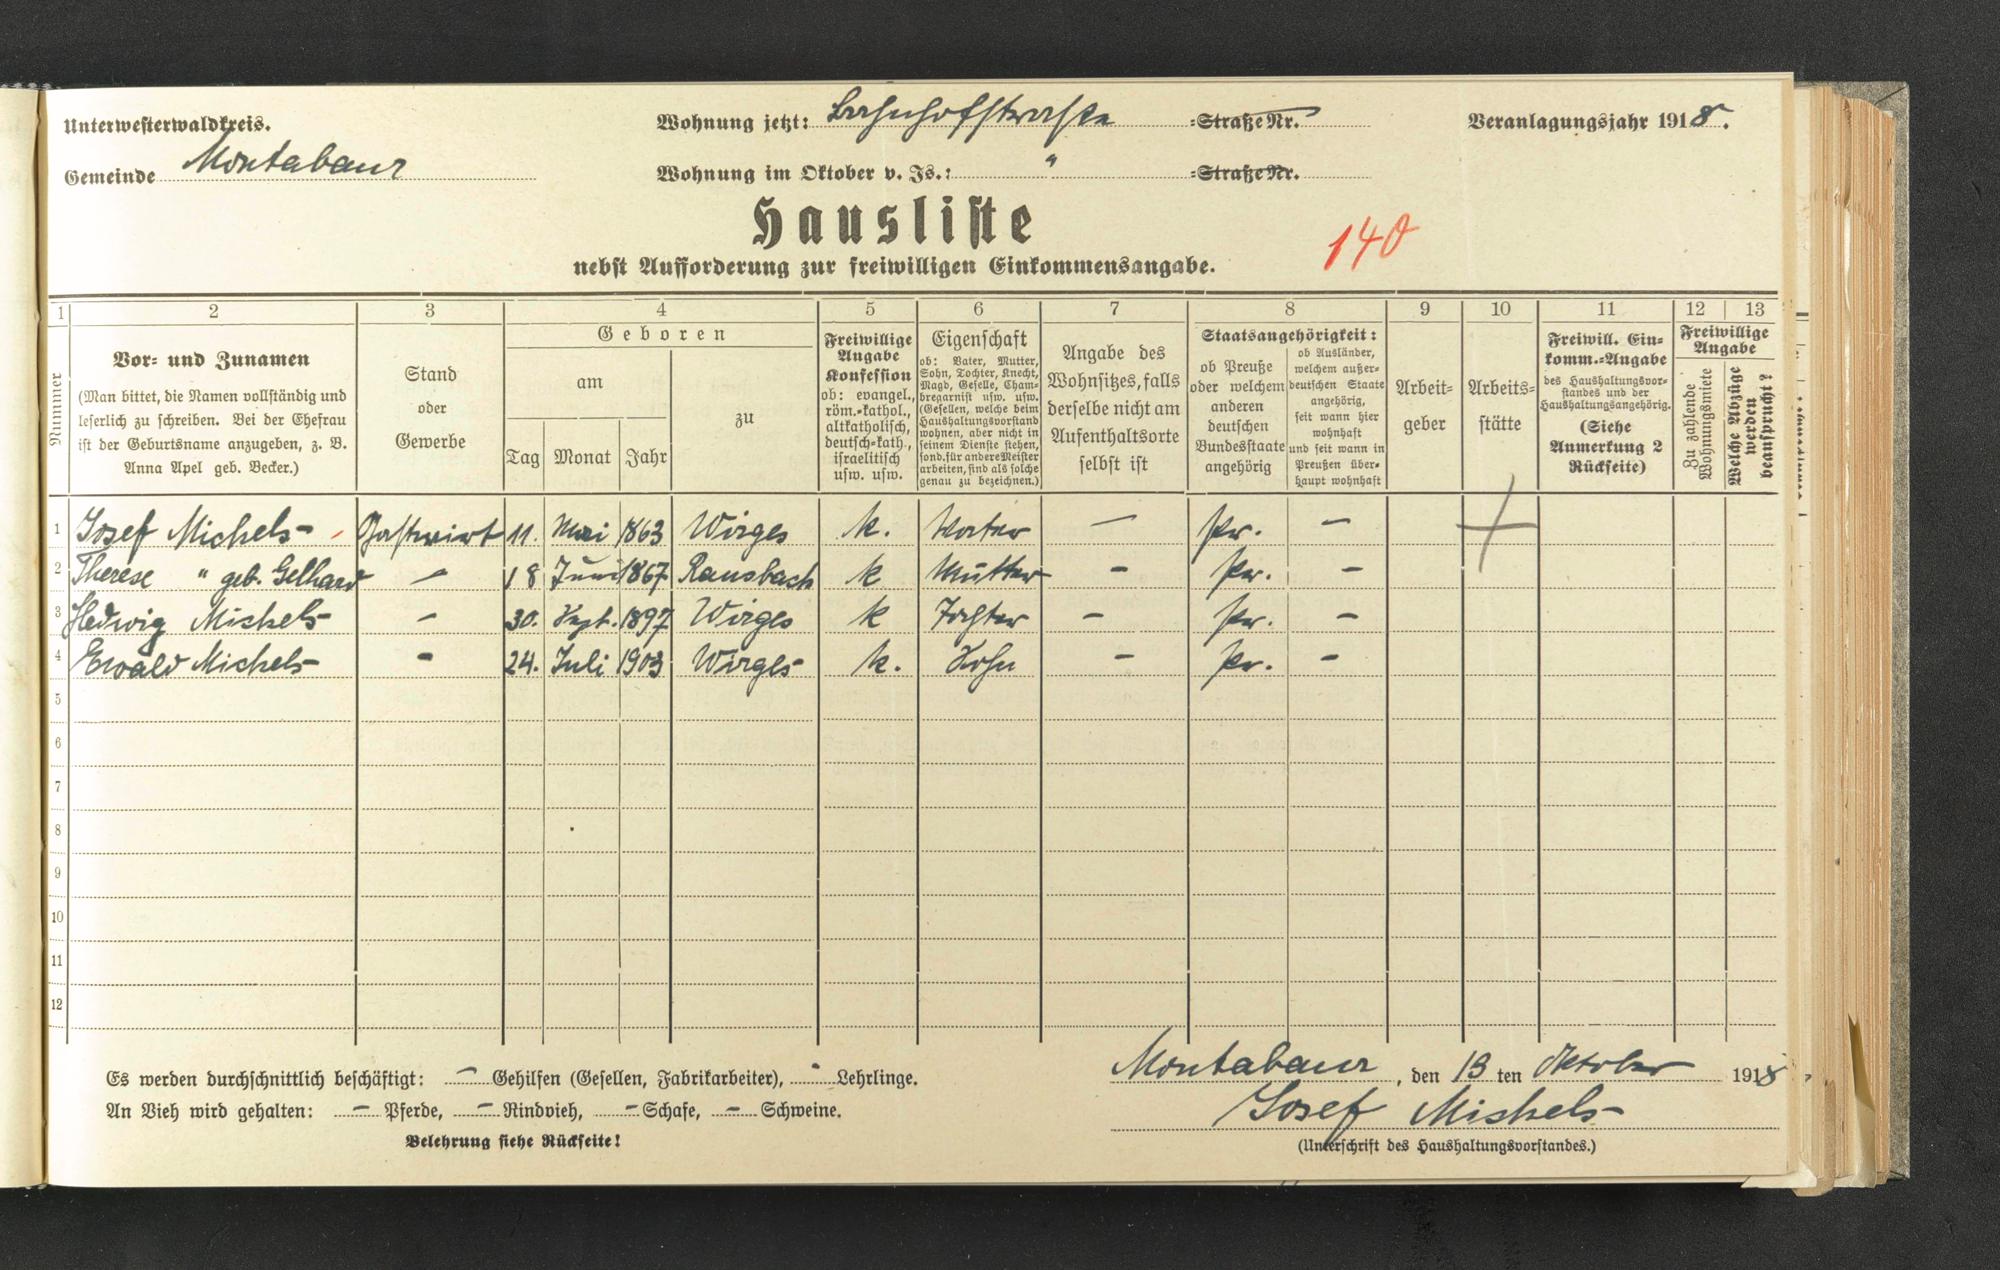 Unterwesterwaldkreis.
Gemeinde Montabaur
Wohnung jetzt: Bahnhofstraße =Straße Nr.
Wohnung im Oktober v. Js.: " =Straße Nr.
Veranlagungsjahr 1918.
Hausliste
nebst Aufforderung zur freiwilligen Einkommensangabe.
140
1 2 3 4 5 6 7 8 9 10 11 12 13
Nummer
Vor- und Zunamen
(Man bittet, die Namen vollständig und
leserlich zu schreiben. Bei der Ehefrau
ist der Geburtsname anzugeben, z. B.
Anna Apel geb. Becker.)
Stand
oder
Gewerbe
Geboren
am
Tag Monat Jahr
zu
Freiwillige
Angabe
Konfession
ob: evangel.,
röm.-kathol.,
altkatholisch,
deutsch-kath.,
israelitisch
usw. usw.
Eigenschaft
ob: Vater, Mutter,
Sohn, Tochter, Knecht,
Magd, Geselle, Cham-
bregarnist usw. usw.
(Gesellen, welche beim
Haushaltungsvorstand
wohnen, aber nicht in
seinem Dienste stehen,
sond. für andere Meister
arbeiten, sind als solche
genau zu bezeichnen.)
Angabe des
Wohnsitzes, falls
derselbe nicht am
Aufenthaltsorte
selbst ist
Staatsangehörigkeit:
ob Preuße
oder welchem
anderen
deutschen
Bundesstaate
angehörig
ob Ausländer,
welchem außer-
deutschen Staate
angehörig,
seit wann hier
wohnhaft
und seit wann in
Preußen über-
haupt wohnhaft
Arbeit=
geber
Arbeits=
stätte
Freiwill. Ein-
komm.-Angabe
des Haushaltungsvor-
standes und der
Haushaltungsangehörig.
(Siehe
Anmerkung 2
Rückseite)
Freiwillige
Angabe
Zu zahlende
Wohnungsmiete
Welche Abzüge
werden
beansprucht?
1 Josef Michels - Gastwirt 11. Mai 1863 Wirges k. Vater — Pr. —
2 Therese " geb. Gelhard — 18 Juni 1867 Ransbach k Mutter — Pr. —
3 Hedwig Michels — 30. Sept. 1897 Wirges k Tochter — Pr. —
4 Ewald Michels — 24. Juli 1903 Wirges k. Sohn — Pr. —
5
6
7
8
9
10
11
12
Es werden durchschnittlich beschäftigt: — Gehilfen (Gesellen, Fabrikarbeiter), - Lehrlinge.
An Vieh wird gehalten: — Pferde, — Rindvieh, — Schafe, — Schweine.
Belehrung siehe Rückseite!
Montabaur, den 13 ten Oktober 1918
Josef Michels
(Unterschrift des Haushaltungsvorstandes.)